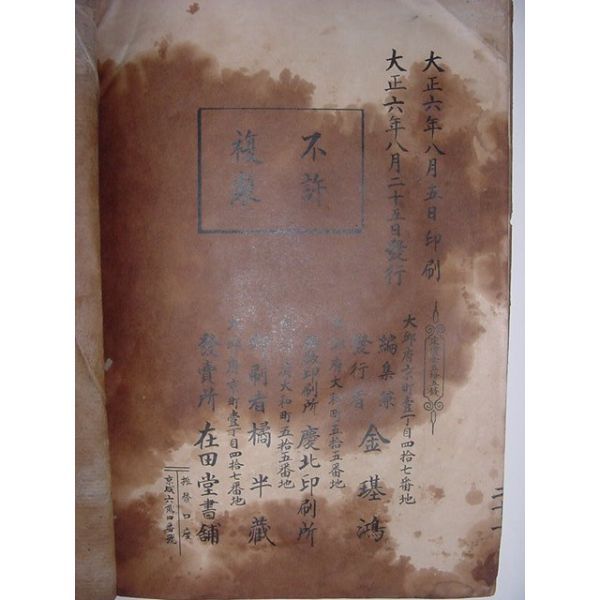 大正六年八月五日印刷
大正六年八月二十五日發行
不許
複製
大邱府京町壹丁目四拾七番地
編集兼
發行者 金璂鴻
大和町五拾五番地
印刷所 慶北印刷所
大和町五拾五番地
印刷者 橘半藏
府京町壹丁目四拾七番地
發賣所 在田堂書舖
振替口座
京城六